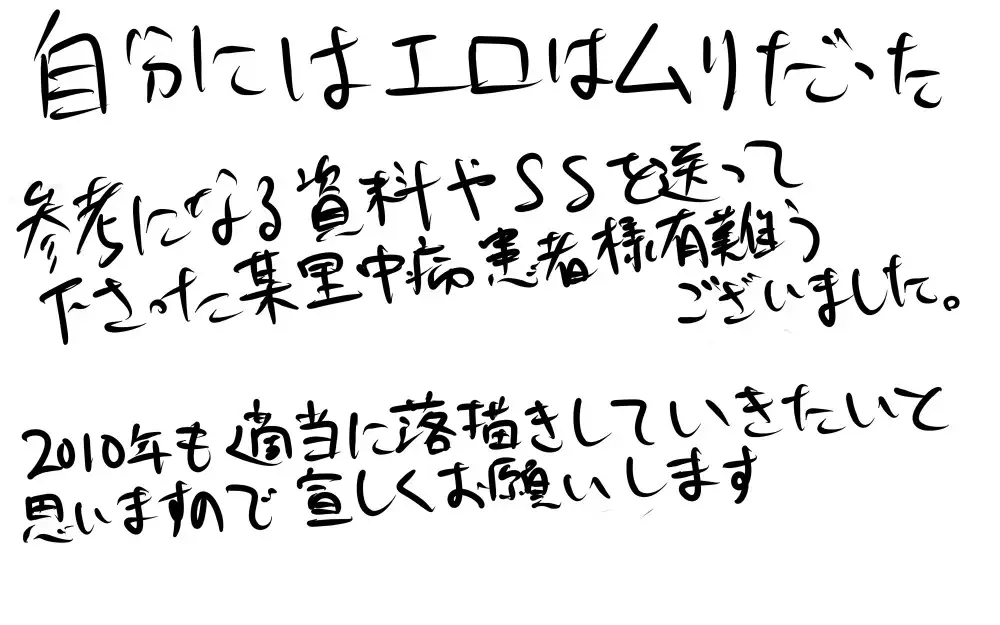 自分にはエロはムリだった
参考になる資料やSSを送って
下さった某里中病患者様有難う
ございました。
2010年も適当に落描きしていきたいと
思いますので宜しくお願いします